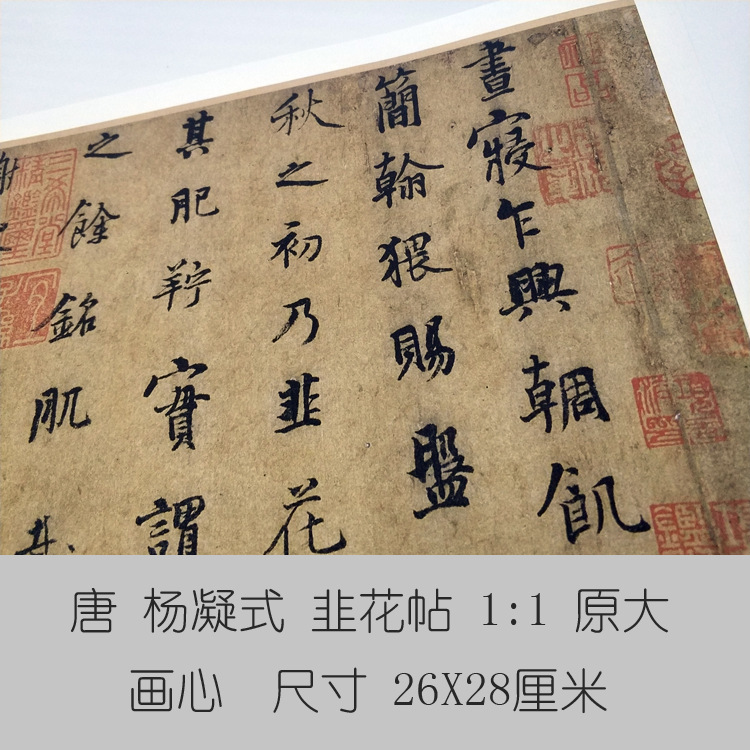 晝寢乍興輖飢
簡翰猥賜盤
秋之初乃韭花
其肥羜實謂
之餘銘肌
唐 杨凝式 韭花帖 1:1 原大
画心 尺寸 26X28厘米